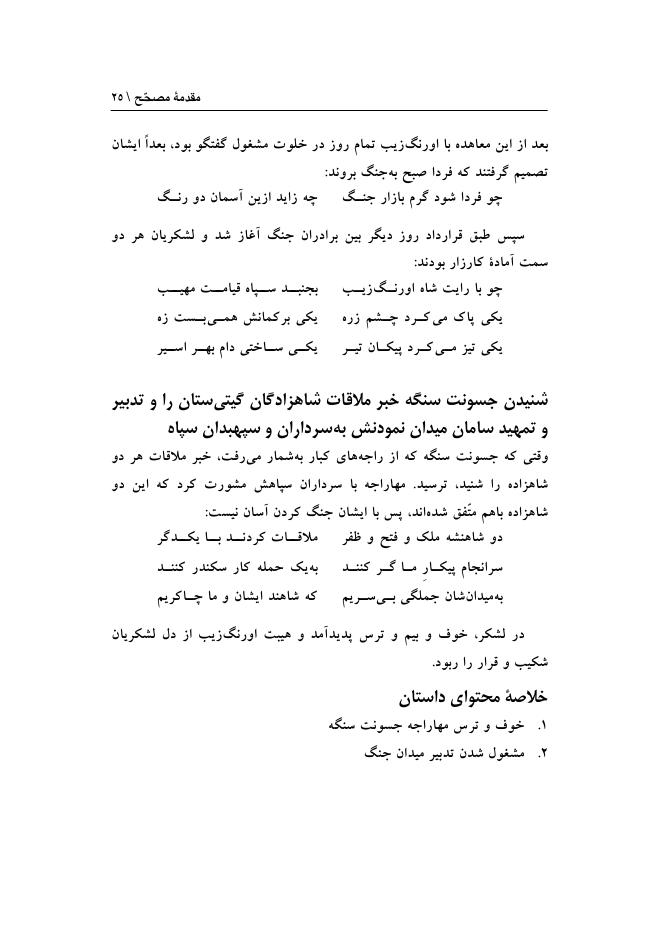 مقدمهٔ مصحّح \ ۲۵
بعد از این معاهده با اورنگ‌زیب تمام روز در خلوت مشغول گفتگو بود، بعداً ایشان
تصمیم گرفتند که فردا صبح به‌جنگ بروند:
چو فردا شود گرم بازار جنگ چه زاید ازین آسمان دو رنگ
سپس طبق قرارداد روز دیگر بین برادران جنگ آغاز شد و لشکریان هر دو
سمت آمادهٔ کارزار بودند:
چو با رایت شاه اورنگ‌زیب بجنبد سپاه قیامت مهیب
یکی پاک می‌کرد چشم زره یکی برکمانش همی‌بست زه
یکی تیز می‌کرد پیکان تیر یکی ساختی دام بهر اسیر
شنیدن جسونت سنگه خبر ملاقات شاهزادگان گیتی‌ستان را و تدبیر
و تمهید سامان میدان نمودنش به‌سرداران و سپهبدان سپاه
وقتی که جسونت سنگه که از راجه‌های کبار به‌شمار می‌رفت، خبر ملاقات هر دو
شاهزاده را شنید، ترسید. مهاراجه با سرداران سپاهش مشورت کرد که این دو
شاهزاده باهم متّفق شده‌اند، پس با ایشان جنگ کردن آسان نیست:
دو شاهنشه ملک و فتح و ظفر ملاقات کردند با یکدگر
سرانجام پیکارِ ما گر کنند به‌یک حمله کار سکندر کنند
به‌میدان‌شان جملگی بی‌سریم که شاهند ایشان و ما چاکریم
در لشکر، خوف و بیم و ترس پدیدآمد و هیبت اورنگ‌زیب از دل لشکریان
شکیب و قرار را ربود.
خلاصهٔ محتوای داستان
۱. خوف و ترس مهاراجه جسونت سنگه
۲. مشغول شدن تدبیر میدان جنگ